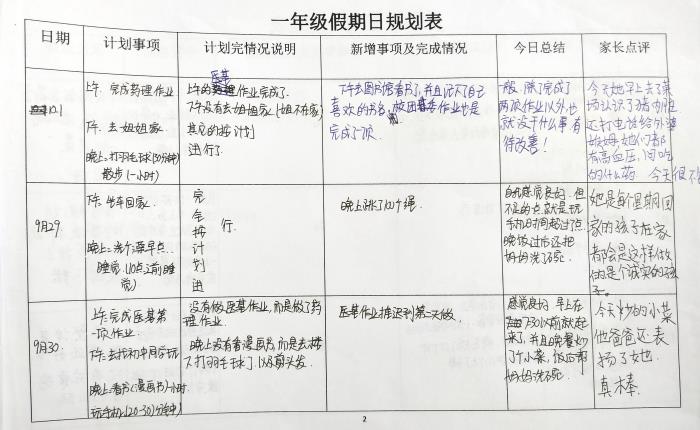 一年级假期日规划表
日期
计划事项
计划完情况说明
新增事项及完成情况
今日总结
家长点评
10.1
上午:完成药理作业
下午:去姐姐家.
晚上:打羽毛球(30分钟)
散步(一小时)
医基
上午的作业完成了.
下午没有去姐姐家(姐不在家)
其它的按计划
进行了.
下午去图书馆看书了,并且记下了自己
喜欢的书名,
作业也是
完成了1项.
一般,除了完成了
两项作业以外,也
就没干什么事,有
待改善!
今天她早上去了菜
场认识了猪肉
还打电话给外婆
她们都
有高血压,问吃
的什么药 今天很不
9月29.
下午:坐车回家.
晚上:洗个澡早点
睡觉.(10点之前睡
觉)
完
全
按
计
划
进
行.
自我感觉良好.但
不足的点就是玩
手机时间超过1点.
晚饭过后还把
妈妈洗了碗.
她是每个星期回
家的孩子在家
都会是这样做
的是个诚实的孩
子.
9月30.
上午:完成医基第
一项作业.
下午:去找初中同学玩
晚上:看书(漫画书)1小时
玩手机(20-30)分钟)
没有做医基作业,而是做了药
理作业.
晚上没有看漫画书,而是去楼
下打羽毛球了.以及剪头发.
医基作业推迟到第二天做.
感觉良好.早上在
7:30以前就起
来了,并且晚餐炒
了个小菜.饭后帮
妈妈洗碗.
今天炒的小菜
他爸爸还表
扬了她.
真棒.
2